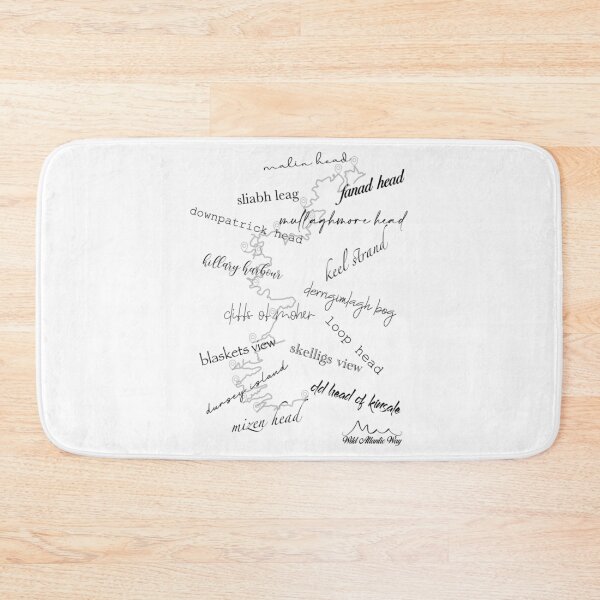 malin head
fanad head
sliabh leag
downpatrick head
mullaghmore head
keel strand
killary harbour
derrigimlagh bog
cliffs of moher
loop head
blaskets view
skelligs view
dursey island
old head of kinsale
mizen head
Wild Atlantic Way